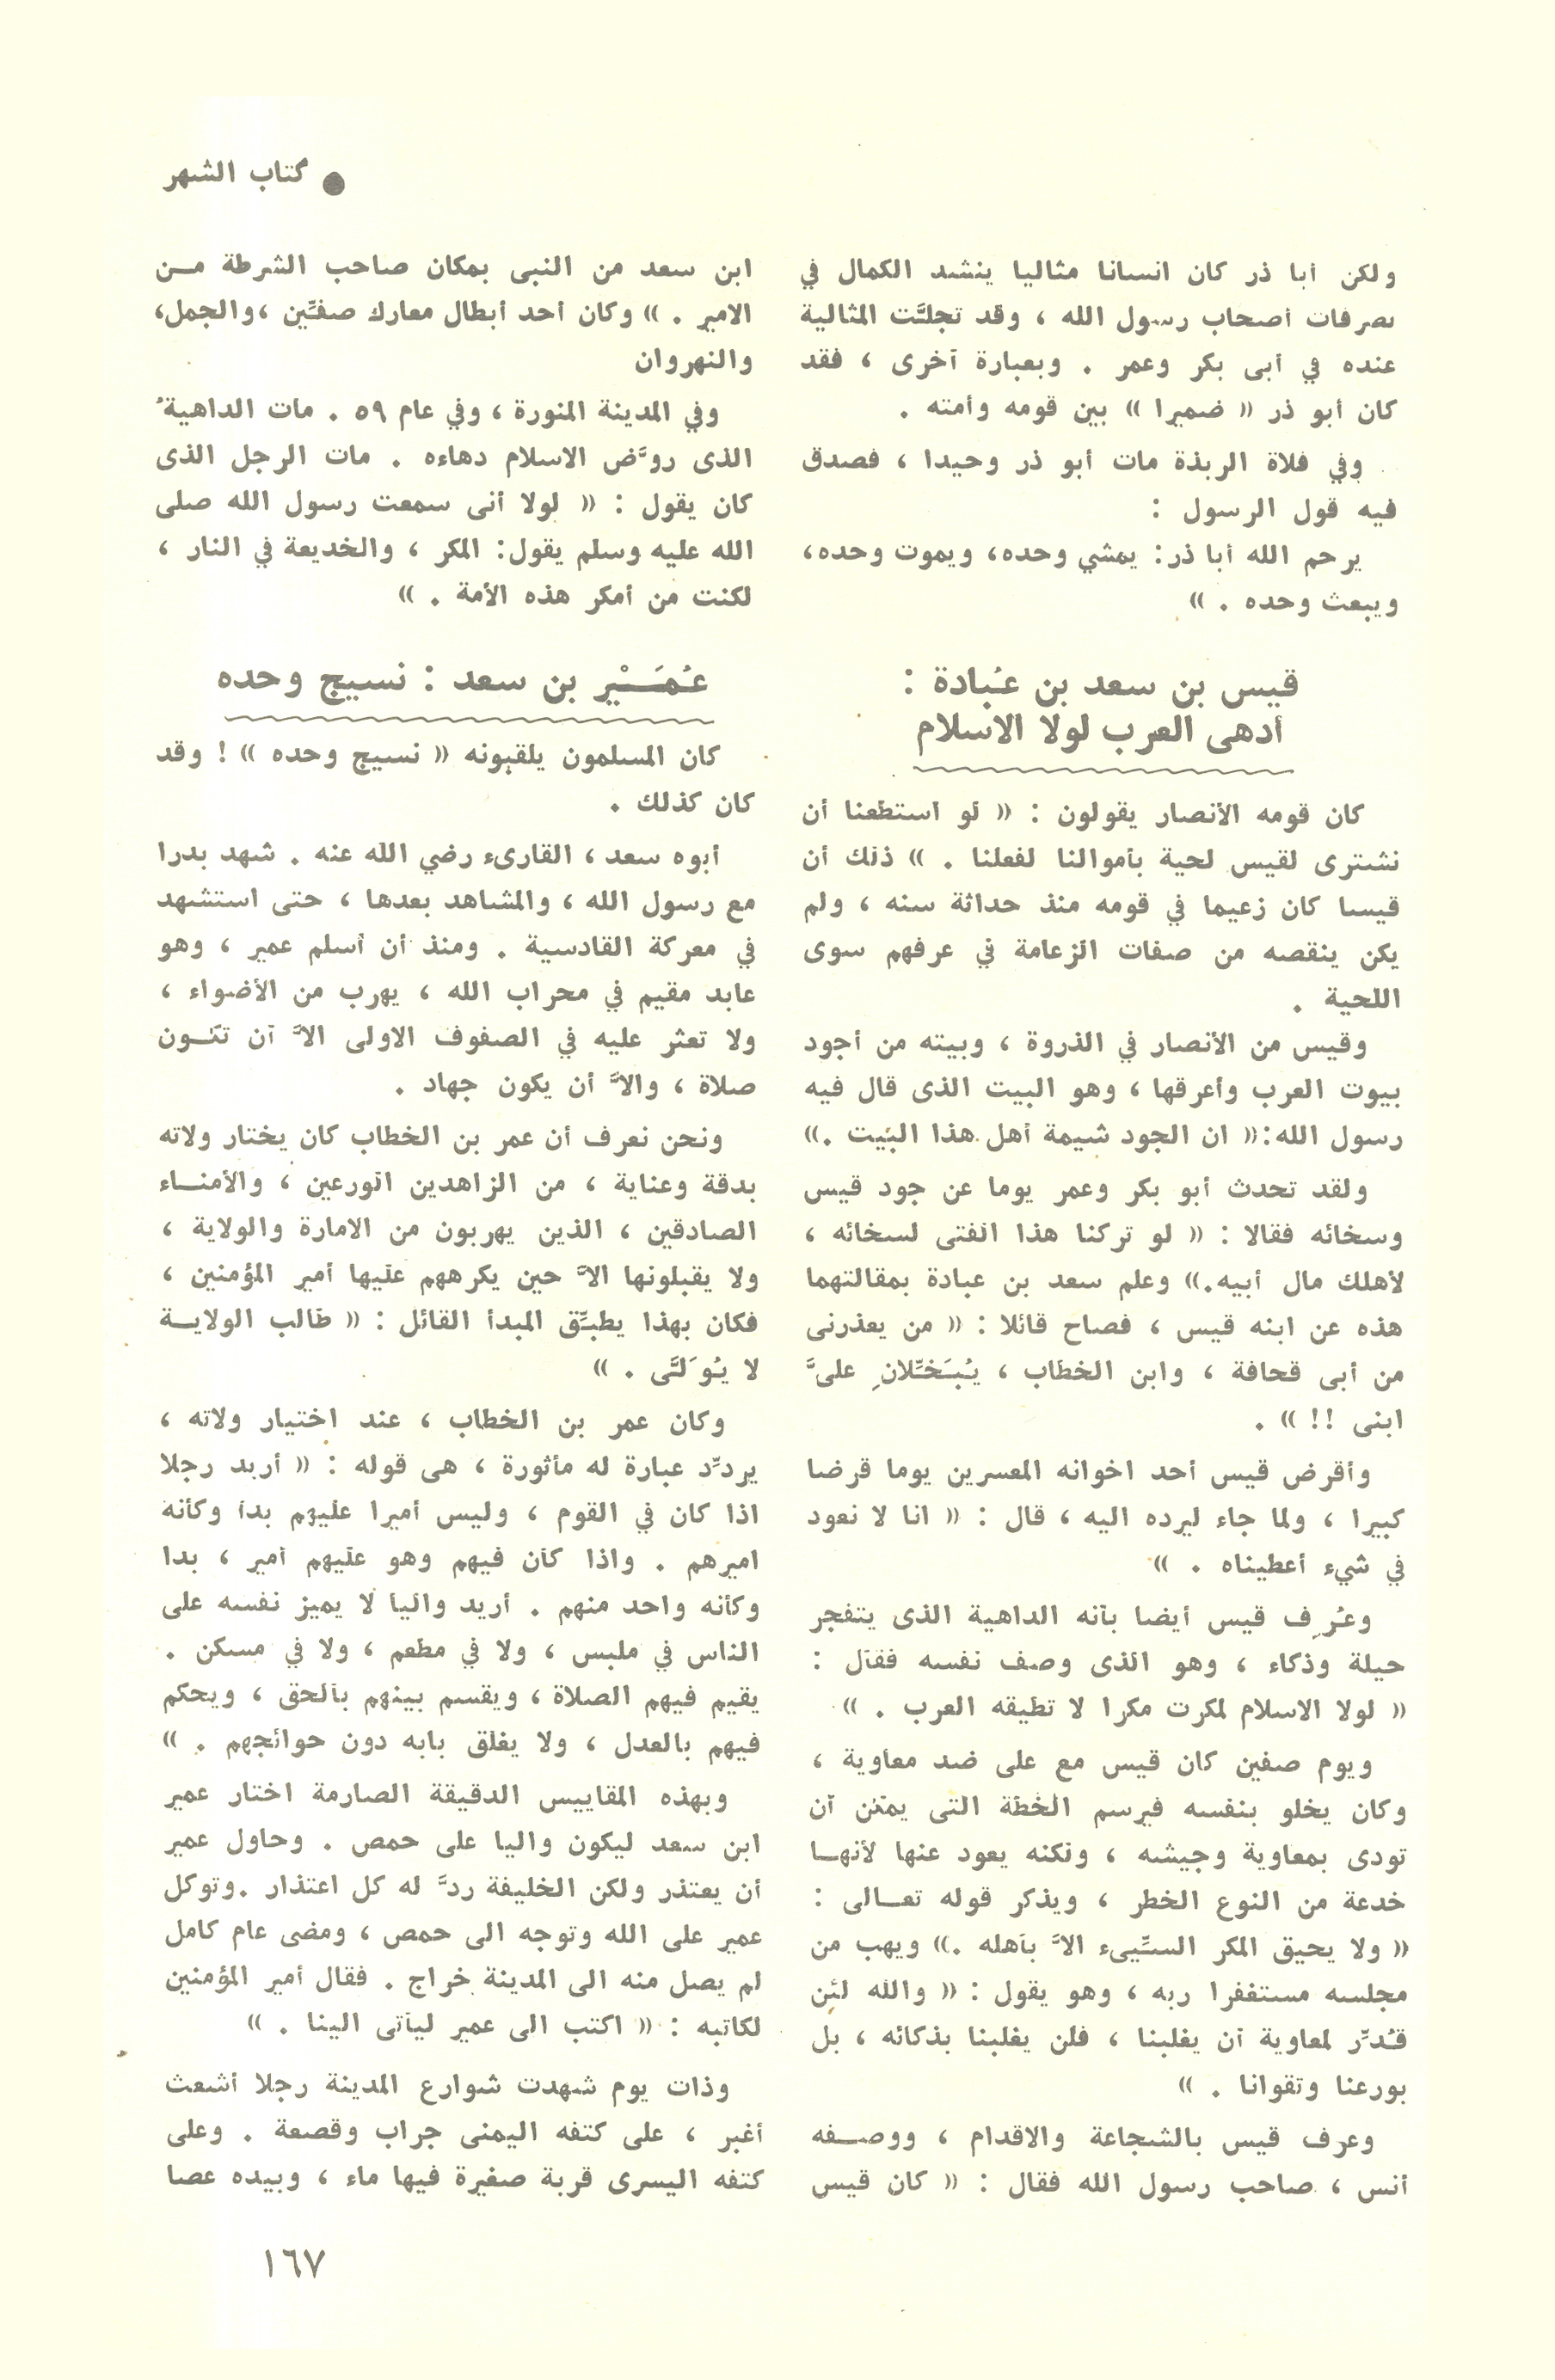 ● كتاب الشهر
ولكن أبا ذر كان انسانا مثاليا ينشد الكمال في
تصرفات أصحاب رسول الله ، وقد تجلَّت المثالية
عنده في أبى بكر وعمر . وبعبارة أخرى ، فقد
كان أبو ذر « ضميرا » بين قومه وأمته .
وفي فلاة الربذة مات أبو ذر وحيدا ، فصدق
فيه قول الرسول :
يرحم الله أبا ذر : يمشي وحده، ويموت وحده،
ويبعث وحده . »
قيس بن سعد بن عُبادة :
أدهى العرب لولا الاسلام
كان قومه الأنصار يقولون : « لو استطعنا أن
نشترى لقيس لحية بأموالنا لفعلنا . » ذلك أن
قيسا كان زعيما في قومه منذ حداثة سنه ، ولم
يكن ينقصه من صفات الزعامة في عرفهم سوى
اللحية .
وقيس من الأنصار في الذروة ، وبيته من أجود
بيوت العرب وأعرقها ، وهو البيت الذى قال فيه
رسول الله: « ان الجود شيمة أهل هذا البيت .»
ولقد تحدث أبو بكر وعمر يوما عن جود قيس
وسخائه فقالا : « لو تركنا هذا الفتى لسخائه ،
لأهلك مال أبيه.» وعلم سعد بن عبادة بمقالتهما
هذه عن ابنه قيس ، فصاح قائلا : « من يعذرنى
من أبى قحافة ، وابن الخطاب ، يُبَخِّلانِ علىَّ
ابنى !! » .
وأقرض قيس أحد اخوانه المعسرين يوما قرضا
كبيرا ، ولما جاء ليرده اليه ، قال : « انا لا نعود
في شيء أعطيناه . »
وعُرِف قيس أيضا بأنه الداهية الذى يتفجر
حيلة وذكاء ، وهو الذى وصف نفسه فقال :
« لولا الاسلام لمكرت مكرا لا تطيقه العرب . »
ويوم صفين كان قيس مع على ضد معاوية ،
وكان يخلو بنفسه فيرسم الخطة التى يمكن أن
تودى بمعاوية وجيشه ، ولكنه يعود عنها لأنهـا
خدعة من النوع الخطر ، ويذكر قوله تعـالى :
« ولا يحيق المكر السيِّيء الاَّ بأهله .» ويهب من
مجلسه مستغفرا ربه ، وهو يقول : « والله لئن
قُدِّر لمعاوية أن يغلبنا ، فلن يغلبنا بذكائه ، بل
بورعنا وتقوانا . »
وعرف قيس بالشجاعة والاقدام ، ووصـفه
أنس ، صاحب رسول الله فقال : « كان قيس
ابن سعد من النبى بمكان صاحب الشرطة مـن
الامير . » وكان أحد أبطال معارك صفِّين ،والجمل،
والنهروان
وفي المدينة المنورة ، وفي عام ٥٩ . مات الداهيةُ
الذى روَّض الاسلام دهاءه . مات الرجل الذى
كان يقول : « لولا أنى سمعت رسول الله صلى
الله عليه وسلم يقول: المكر ، والخديعة في النار ،
لكنت من أمكر هذه الأمة . »
عُمَـيْر بن سعد : نسيج وحده
كان المسلمون يلقبونه « نسيج وحده » ! وقد
كان كذلك .
أبوه سعد ، القارىء رضي الله عنه . شهد بدرا
مع رسول الله ، والمشاهد بعدها ، حتى استشهد
في معركة القادسية . ومنذ أن أسلم عمير ، وهو
عابد مقيم في محراب الله ، يهرب من الأضواء ،
ولا تعثر عليه في الصفوف الاولى الاَّ أن تكـون
صلاة ، والاَّ أن يكون جهاد .
ونحن نعرف أن عمر بن الخطاب كان يختار ولاته
بدقة وعناية ، من الزاهدين الورعين ، والأمنـاء
الصادقين ، الذين يهربون من الامارة والولاية ،
ولا يقبلونها الاَّ حين يكرههم عليها أمير المؤمنين ،
فكان بهذا يطبِّق المبدأ القائل : « طالب الولايـة
لا يُوَلَّى . »
وكان عمر بن الخطاب ، عند اختيار ولاته ،
يردِّد عبارة له مأثورة ، هى قوله : « أريد رجلا
اذا كان في القوم ، وليس أميرا عليهم بدا وكأنه
اميرهم . واذا كان فيهم وهو عليهم أمير ، بدا
وكأنه واحد منهم . أريد واليا لا يميز نفسه على
الناس في ملبس ، ولا في مطعم ، ولا في مسكن .
يقيم فيهم الصلاة ، ويقسم بينهم بالحق ، ويحكم
فيهم بالعدل ، ولا يغلق بابه دون حوائجهم . »
وبهذه المقاييس الدقيقة الصارمة اختار عمير
ابن سعد ليكون واليا على حمص . وحاول عمير
أن يعتذر ولكن الخليفة ردَّ له كل اعتذار .وتوكل
عمير على الله وتوجه الى حمص ، ومضى عام كامل
لم يصل منه الى المدينة خراج . فقال أمير المؤمنين
لكاتبه : « اكتب الى عمير ليأتى الينا . »
وذات يوم شهدت شوارع المدينة رجلا أشعث
أغبر ، على كتفه اليمنى جراب وقصعة . وعلى
كتفه اليسرى قربة صغيرة فيها ماء ، وبيده عصا
١٦٧